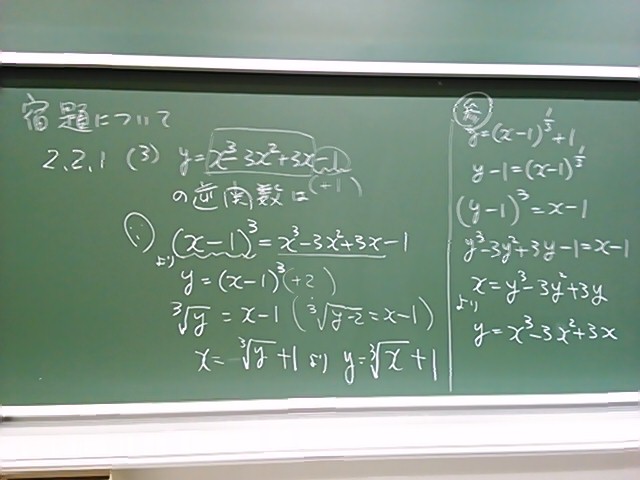 宿題について
2.2.1 (3) y=x³-3x²+3x-1
(+1)
の逆関数は
∵ (x-1)³=x³-3x²+3x-1
より
y=(x-1)³(+2)
³√y=x-1 (³√y-2=x-1)
x=³√y+1 より y=³√x+1
y=(x-1)^⅓+1
y-1=(x-1)^⅓
(y-1)³=x-1
y³-3y²+3y-1=x-1
x=y³-3y²+3y
より
y=x³-3x²+3x